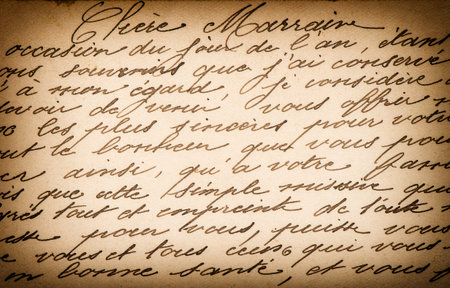 Chère Marraine
occasion du jour de l'an, étant
ons souvenirs que j'ai conservé
é à mon égard, je considère
evoir de venir vous offrir m
les plus sincères pour votre
out le bonheur que vous pou
er ainsi, qu'à votre fami
is que cette simple missive que
près tout et empreinte de toute
pour vous, puisse vous
de vous et tous ceux qui vous
en bonne santé, et vous p